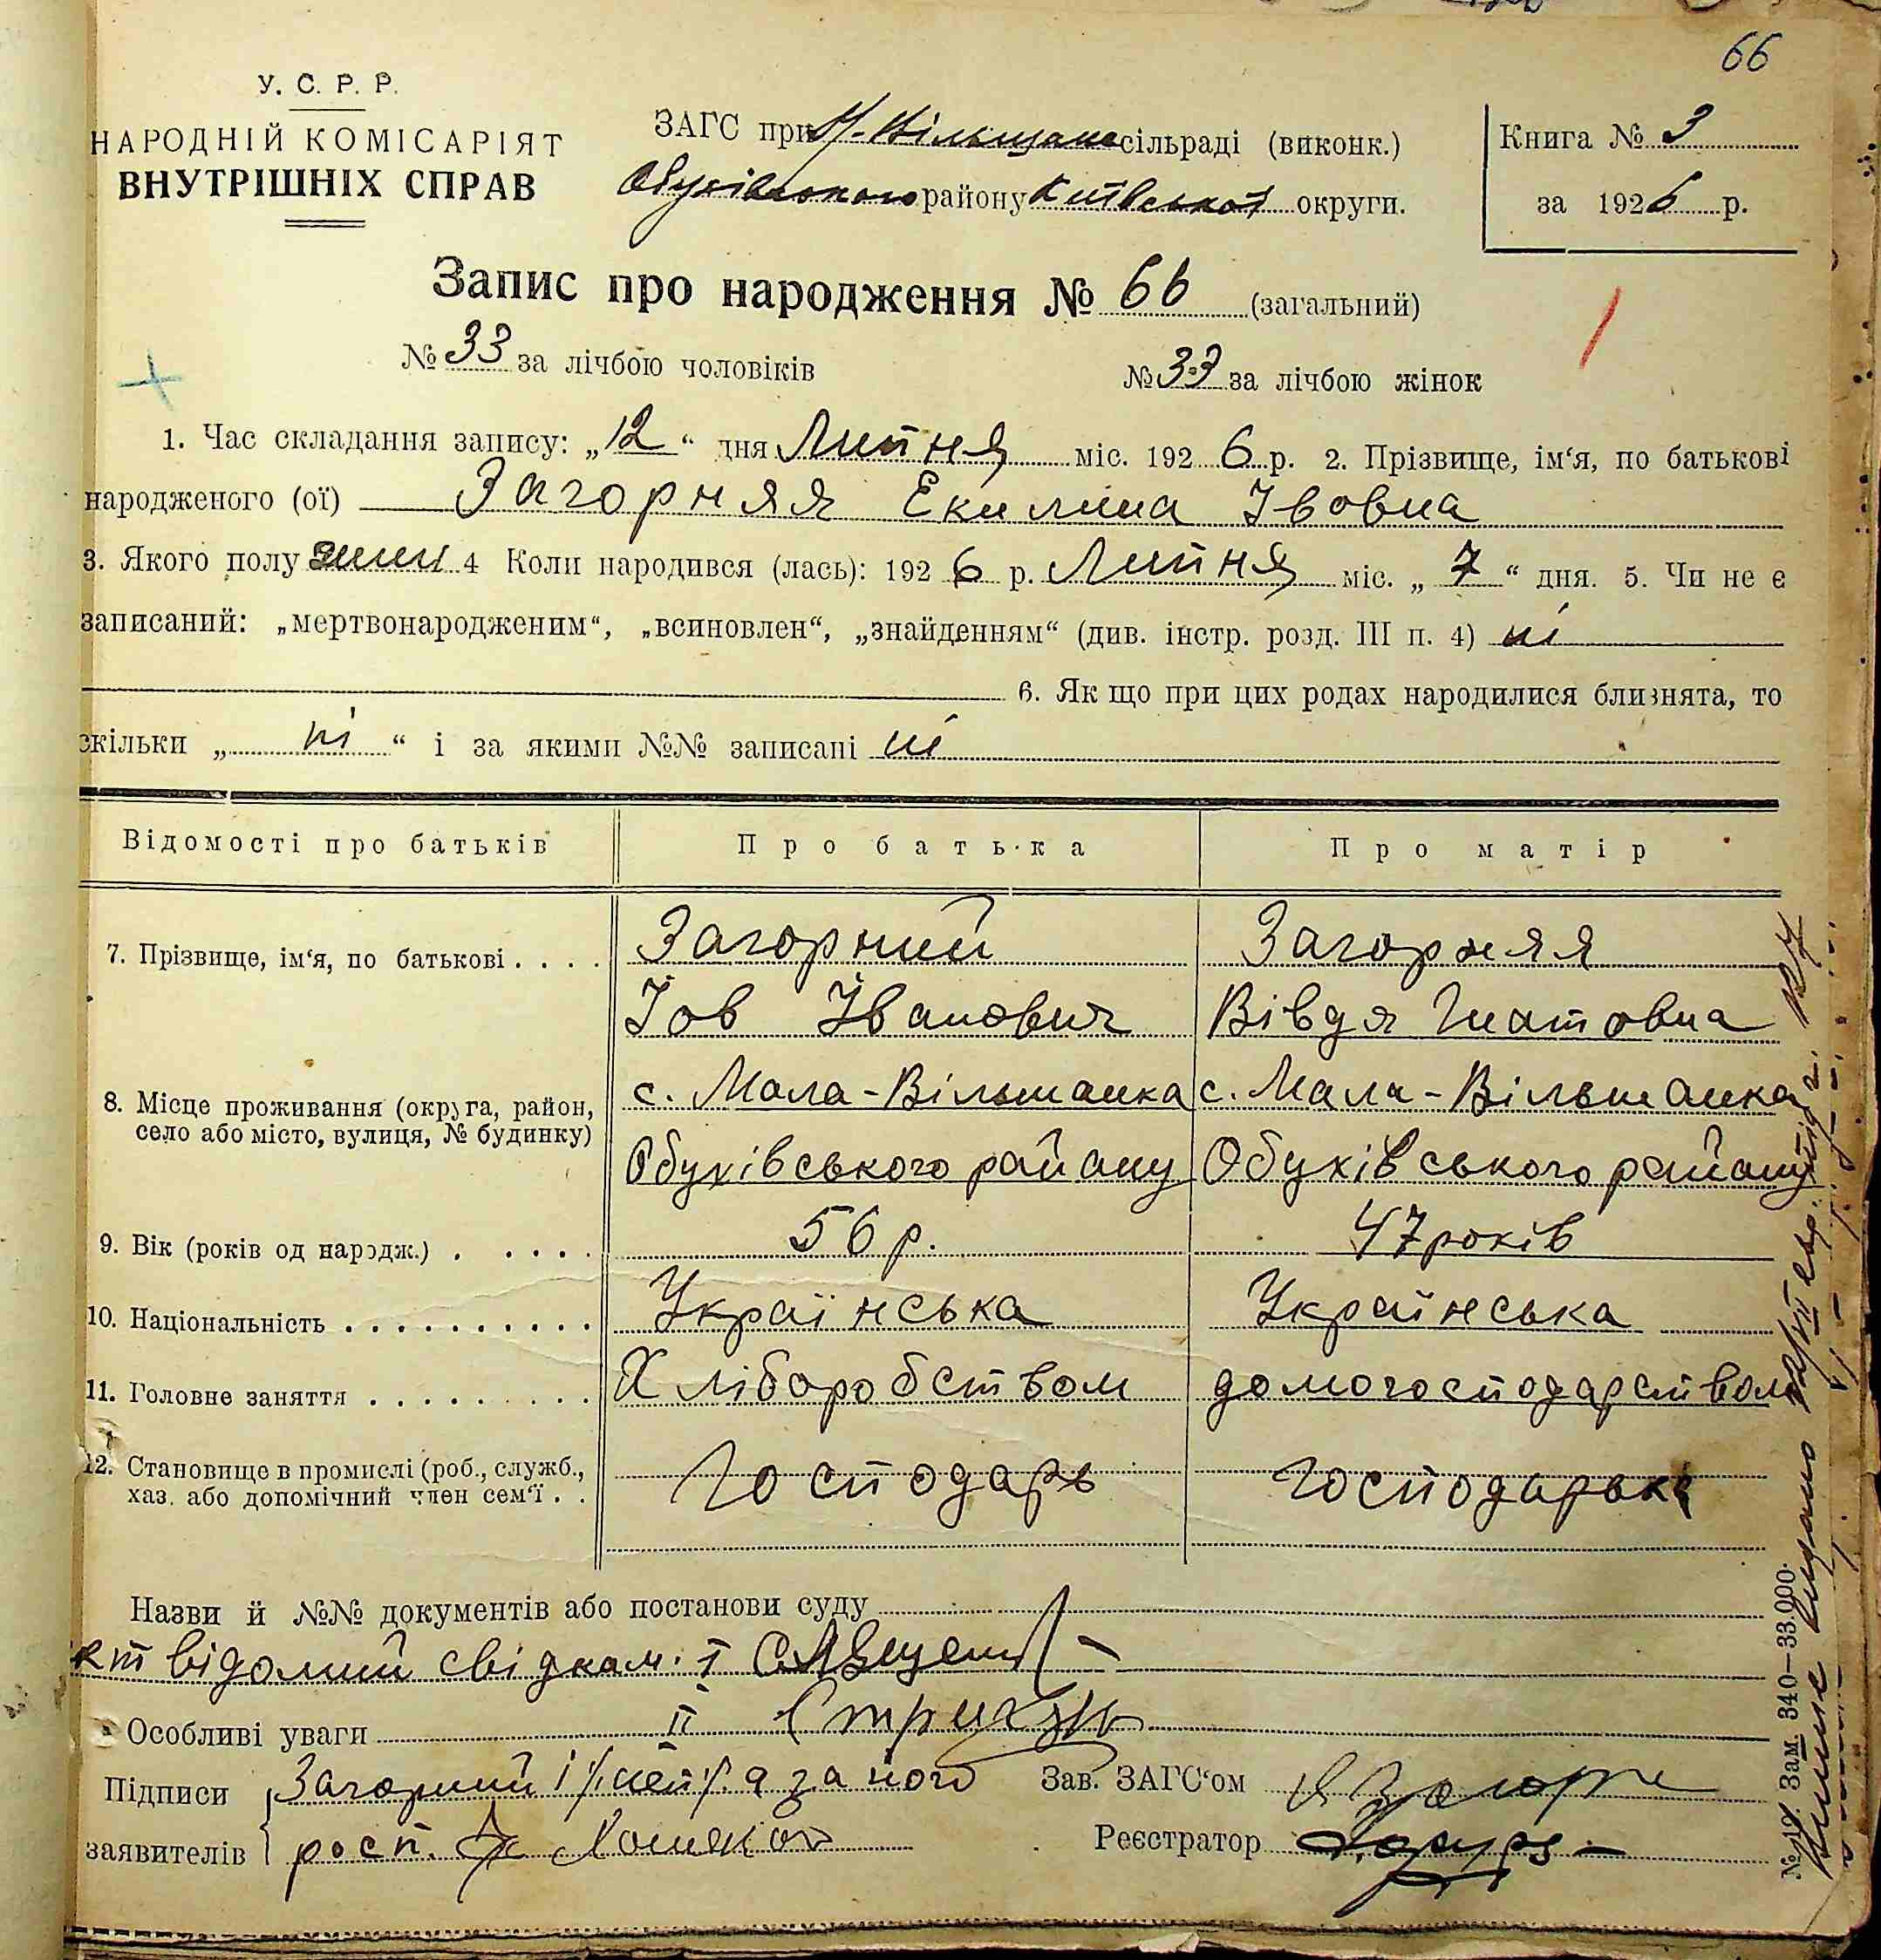 66
У. С. Р. Р.
НАРОДНІЙ КОМІСАРІЯТ
ВНУТРІШНІХ СПРАВ
ЗАГС при М-Вільшанс сільраді (виконк.)
Обухівського району Київської округи.
Книга № 3
за 1926 р.
Запис про народження № 66 (загальний)
№ 33 за лічбою чоловіків № 33 за лічбою жінок
1. Час складання запису: „12“ дня Липня міс. 1926 р. 2. Прізвище, ім‘я, по батькові
народженого (ої) Загорняя Екилина Івовна
3. Якого полу жин 4 Коли народився (лась): 1926 р. Липня міс. „7“ дня. 5. Чи не є
записаний: „мертвонародженим“, „всиновлен“, „знайденням“ (див. інстр. розд. III п. 4) ні
6. Як що при цих родах народилися близнята, то
скільки „ні“ і за якими №№ записані ні
Відомості про батьків Про батька Про матір
7. Прізвище, ім‘я, по батькові . . . . Загорний Загорняя
Іов Іванович Вівдя Гнатовна
8. Місце проживання (округа, район, село або місто, вулиця, № будинку) с. Мала-Вільшанка с. Мала-Вільшанка
Обухівського району Обухівського району
9. Вік (років од нарồдж.) . . . . . 56 р. 47 років
10. Національність . . . . . . . . . . Українська Українська
11. Головне заняття . . . . . . . . . Хліборобством домогосподарством
12. Становище в промислі (роб., служб., хаз. або допомічний член сем‘ї . . Господарь господарька
Назви й №№ документів або постанови суду
кт відомий свідкам: I
Особливі уваги II
Підписи Загорний і за його Зав. ЗАГС‘ом
заявителів росп. Реєстратор
№ 19. Зам. 340—33.000.